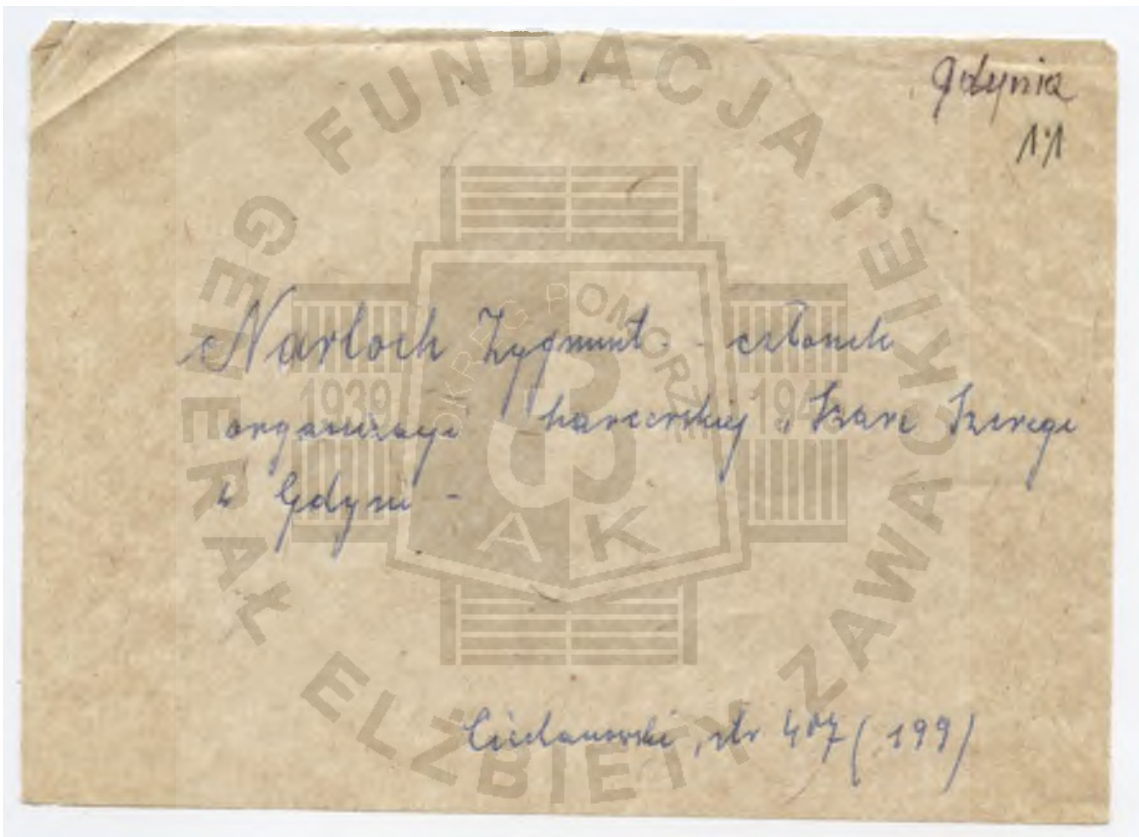 Gdynia
1/1
Narloch Zygmunt - członek
organizacji harcerskiej Szare Szeregi
w Gdyni -
Ciechanowski, str 407 (199)
FUNDACJA GENERAŁ ELŻBIETY ZAWACKIEJ
OKRĘG POMORZE
1939
194
AK